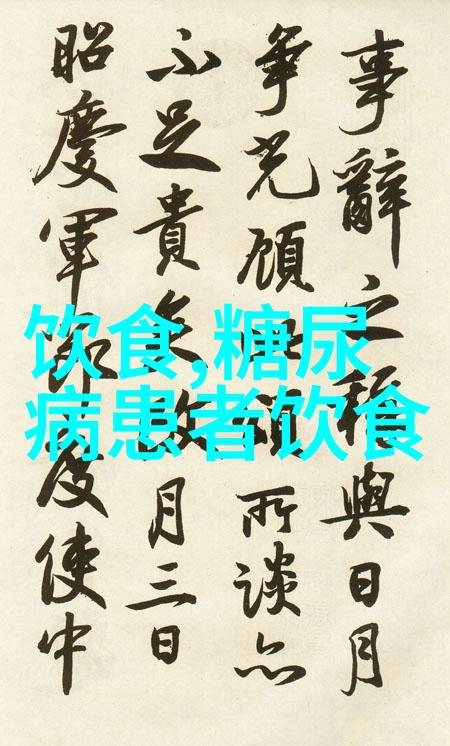 事辭之稱與日月
爭光顧頌所談亦
不足貴矣月三日
昭慶軍節度使中
饮食,糖尿
病患者饮食